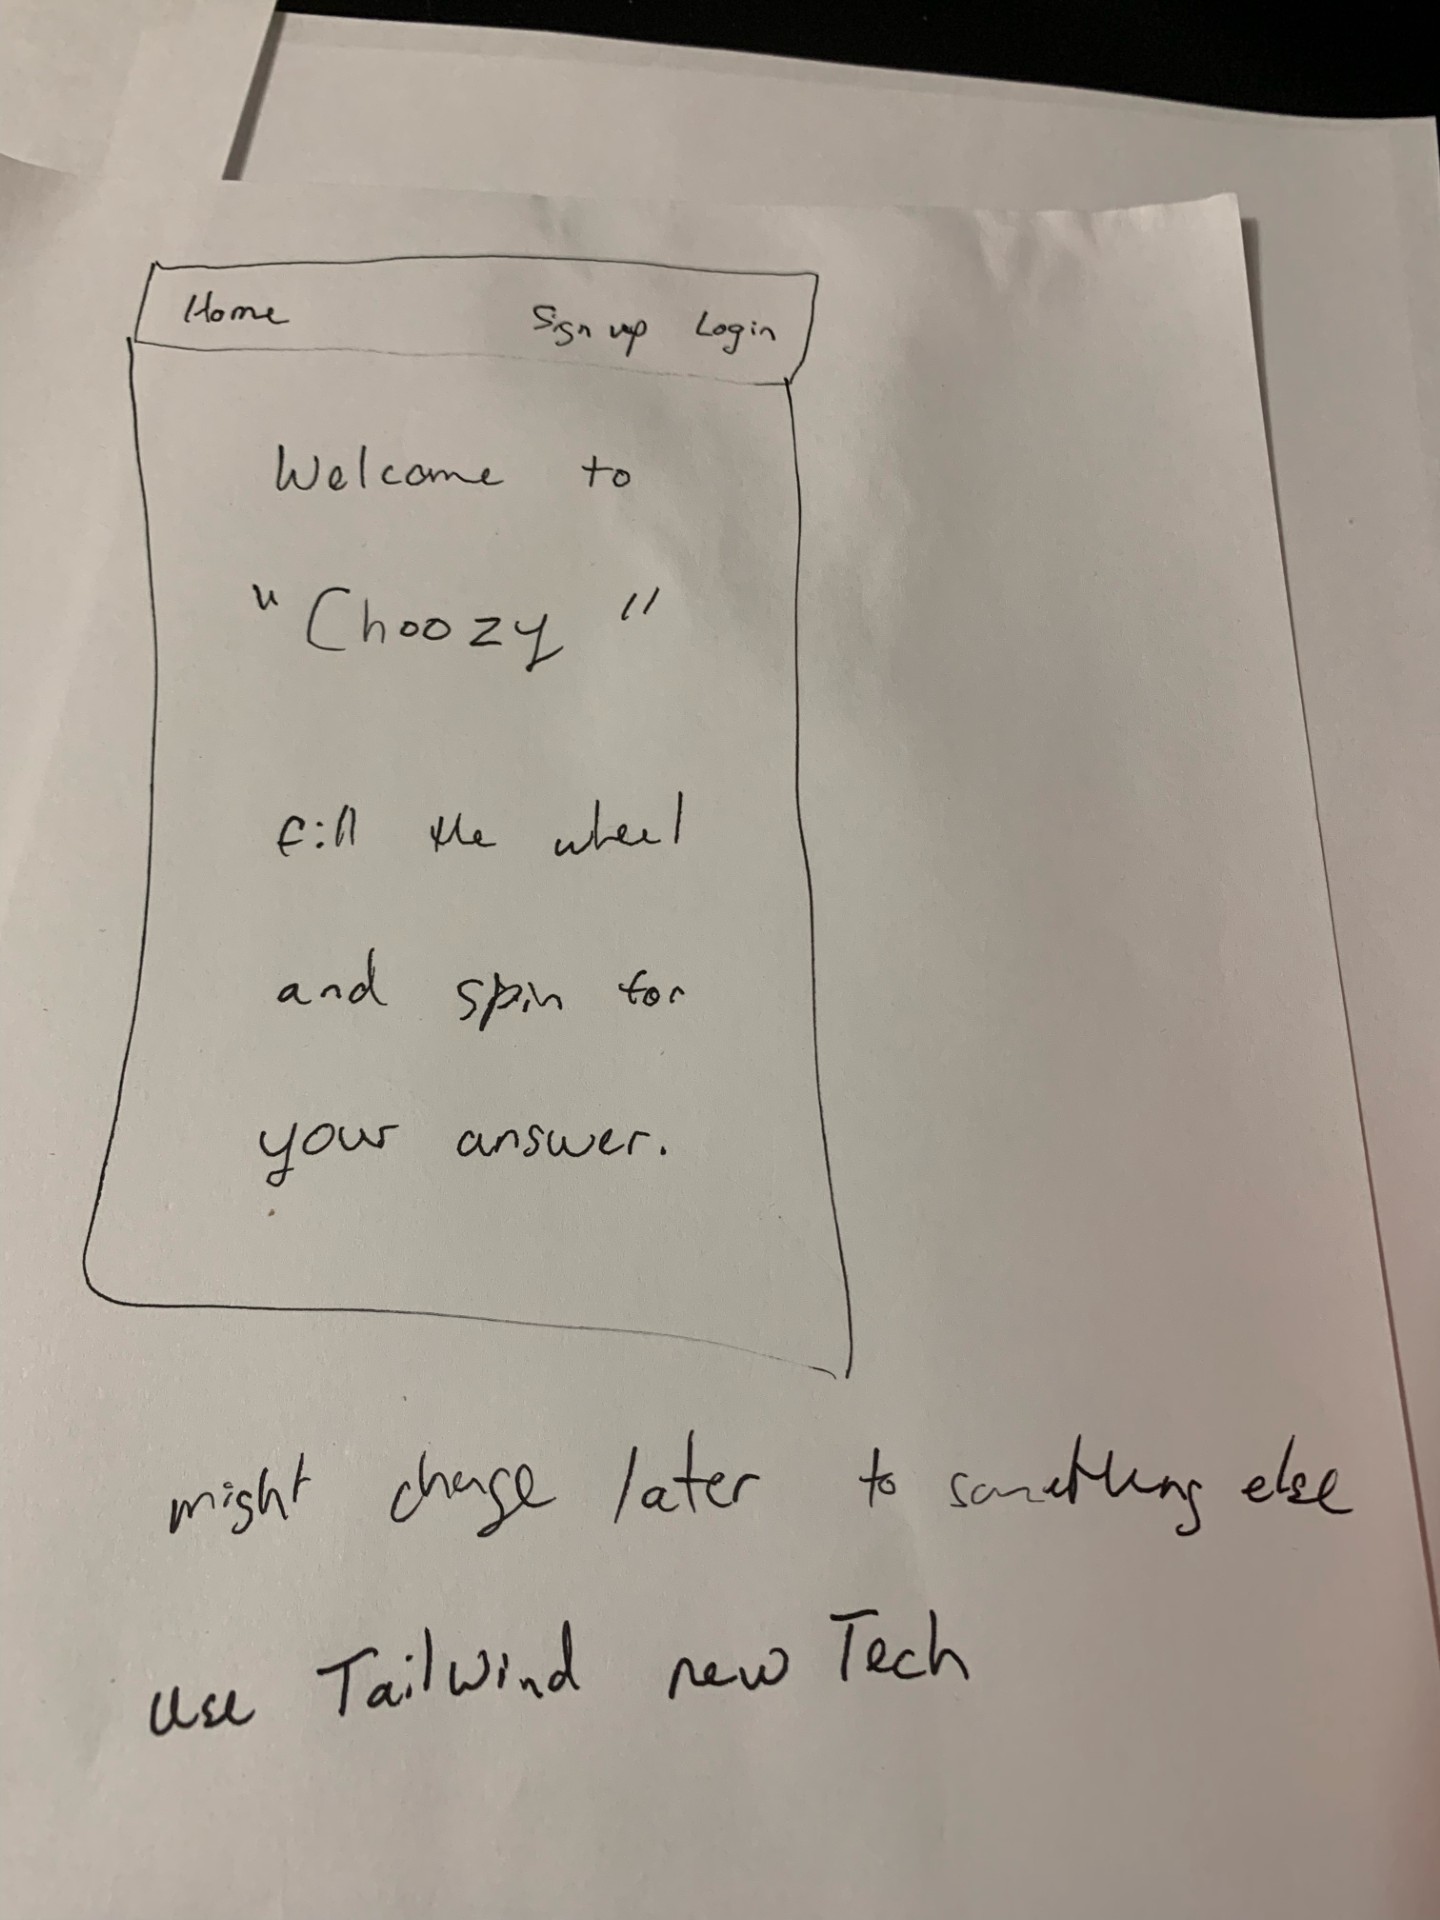 Home Sign up Login
Welcome to
"Choozy"
fill the wheel
and spin for
your answer.
might change later to something else
use TailWind new Tech